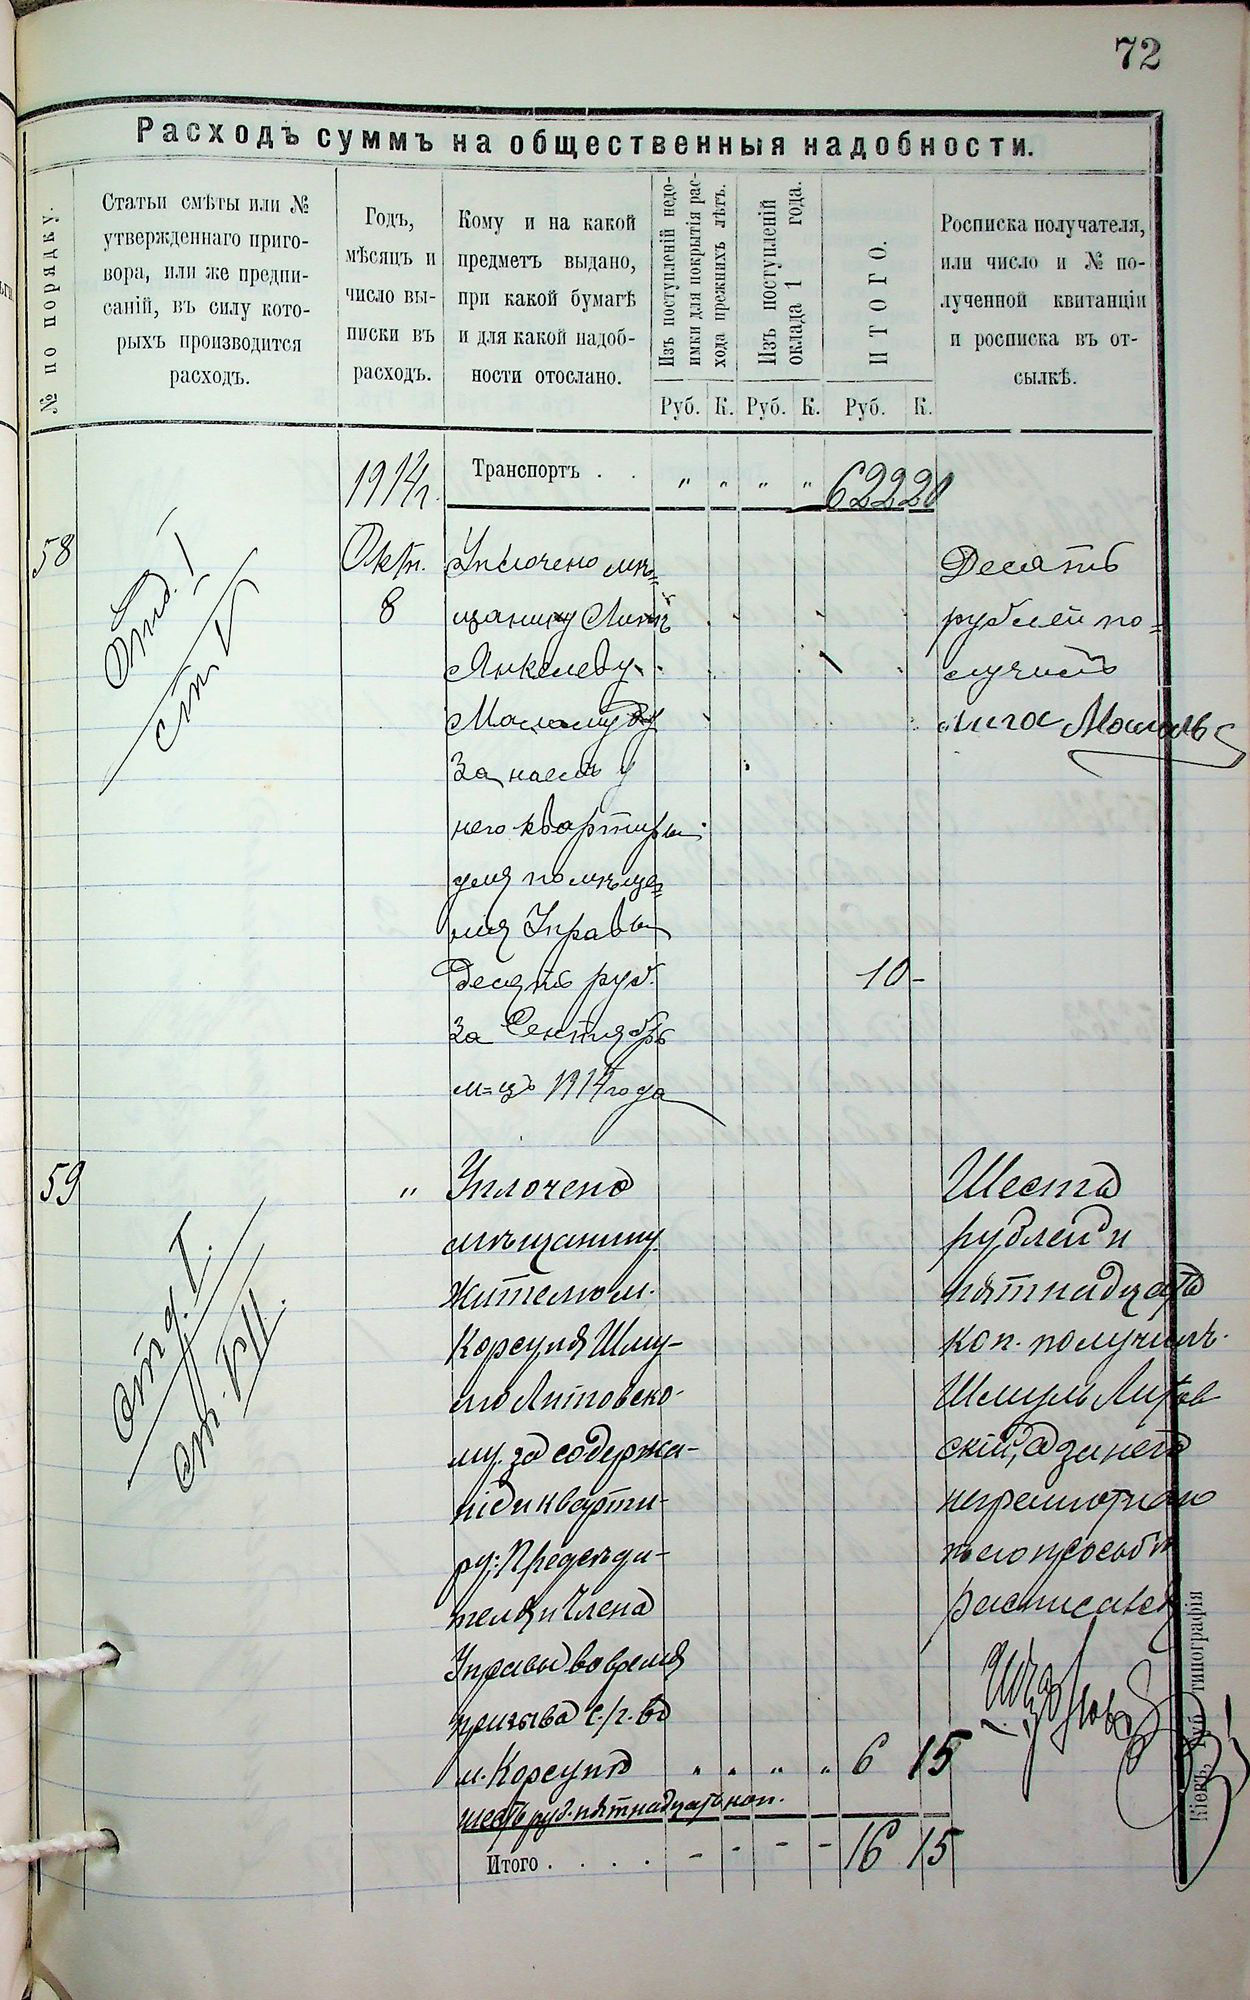 72
Расходъ суммъ на общественныя надобности.
№ по порядку.
Статьи смѣты или №
утвержденнаго приго-
вора, или же предпи-
саній, въ силу кото-
рыхъ производится
расходъ.
Годъ,
мѣсяцъ и
число вы-
писки въ
расходъ.
Кому и на какой
предметъ выдано,
при какой бумагѣ
и для какой надоб-
ности отослано.
Изъ поступленій недо-
имки для покрытія рас-
хода прежнихъ лѣтъ.
Изъ поступленій
оклада 1 года.
ИТОГО.
Росписка получателя,
или число и № по-
лученной квитанціи
и росписка въ от-
сылкѣ.
Руб. К. Руб. К. Руб. К.
1914 г.
Транспортъ . . " " " " 622 20
58
Отд. I
ст. V
Окт.
8
Уплочено мѣ=
щанину
Янкелеву
За наемъ у
него квартиры
для помѣще=
нія Управы
Десять руб.
За Сентябрь
м=цъ 1914 года
10 -
Десять
рублей по=
лучилъ
59
отд. I.
ст. VII.
"
Уплочено
мѣщанину
жителю м.
Корсуня Шму-
лю Литовско-
му за содержа-
ніе кварти-
ру: Предсѣда-
теля и Члена
Управы во время
призыва с./г. въ
м. Корсунѣ " " " " 6 15
шесть руб. пятнадцать коп.
Шесть
рублей и
пятнадцать
коп. получилъ
Шмуль Литов
скій, а за него
неграмотнаго
по его просьбѣ
расписался
Итого . . . . - - - - 16 15
Кіевъ, типографія